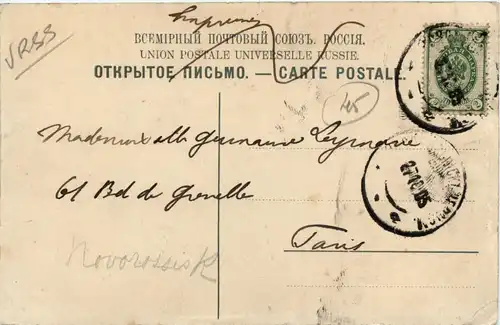 URSS
Imprimé
ВСЕМІРНЫЙ ПОЧТОВЫЙ СОЮЗЪ. РОССІЯ.
UNION POSTALE UNIVERSELLE RUSSIE.
ОТКРЫТОЕ ПИСЬМО. — CARTE POSTALE.
45
Mademoiselle Germaine Leymarie
61 Bd de Grenelle
Paris
Novorossisk
27 10 05